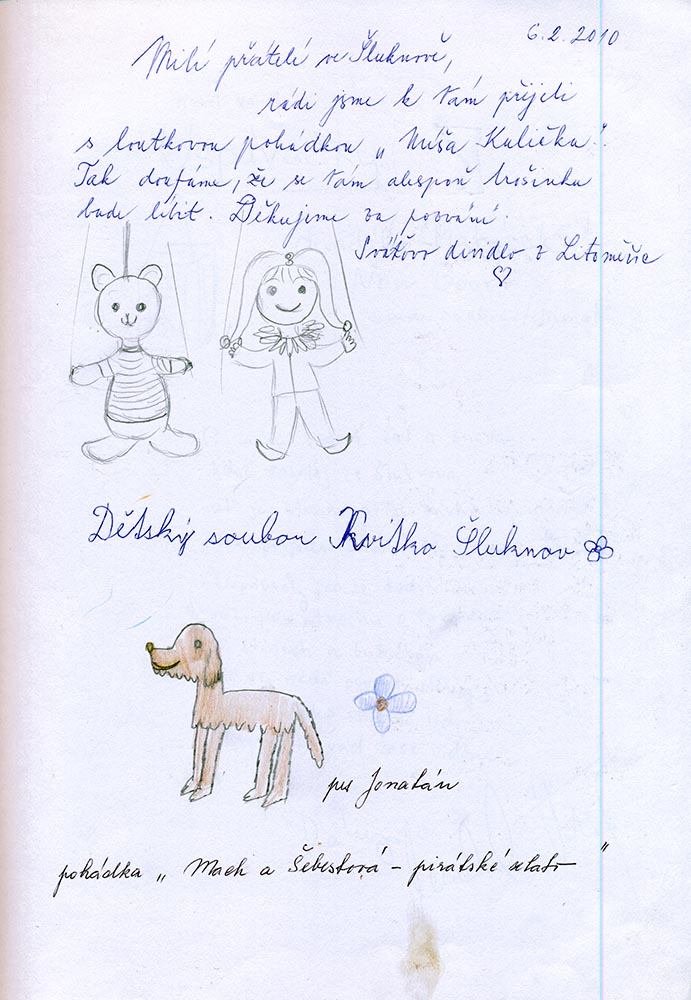 6.2.2010
Milí přátelé ve Šluknově,
rádi jsme k Vám přijeli
s loutkovou pohádkou „Míša Kulička".
Tak doufáme, že se Vám alespoň trošinku
bude líbit. Děkujeme za pozvání.
Svátkovo dividlo z Litoměřic
Dětský soubor Kvítko Šluknov
pes Jonatán
pohádka „Mach a Šebestová - pirátské zlato"